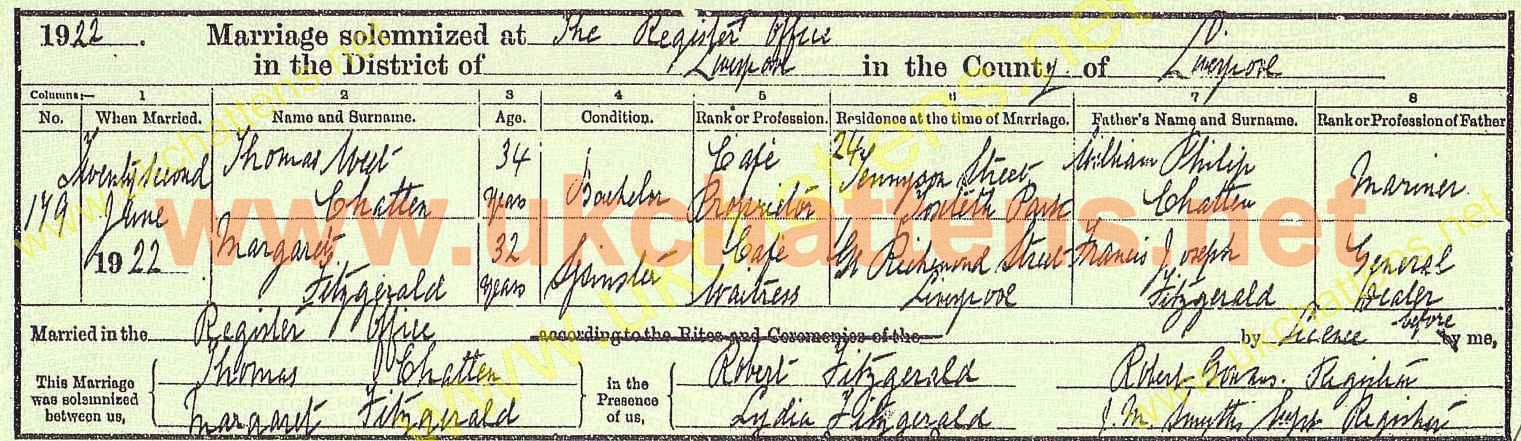 1922. Marriage solemnized at The Register Office
in the District of Liverpool in the County of Liverpool
Columns:— 1 2 3 4 5 6 7 8
No. When Married. Name and Surname. Age. Condition. Rank or Profession. Residence at the time of Marriage. Father's Name and Surname. Rank or Profession of Father
179 Twenty Second June 1922 Thomas West Chatten 34 years Bachelor Café Proprietor 24 Tennyson Street Toxteth Park William Philip Chatten Mariner
Margaret Fitzgerald 32 years Spinster Café Waitress Richmond Street Liverpool Francis Joseph Fitzgerald General Dealer
Married in the Register Office according to the Rites and Ceremonies of the by Licence before by me,
This Marriage was solemnized between us,
Thomas Chatten
Margaret Fitzgerald
in the Presence of us,
Robert Fitzgerald
Lydia Fitzgerald
Robert Registrar
J. M. Smyth Supt Registrar
www.ukchattens.net